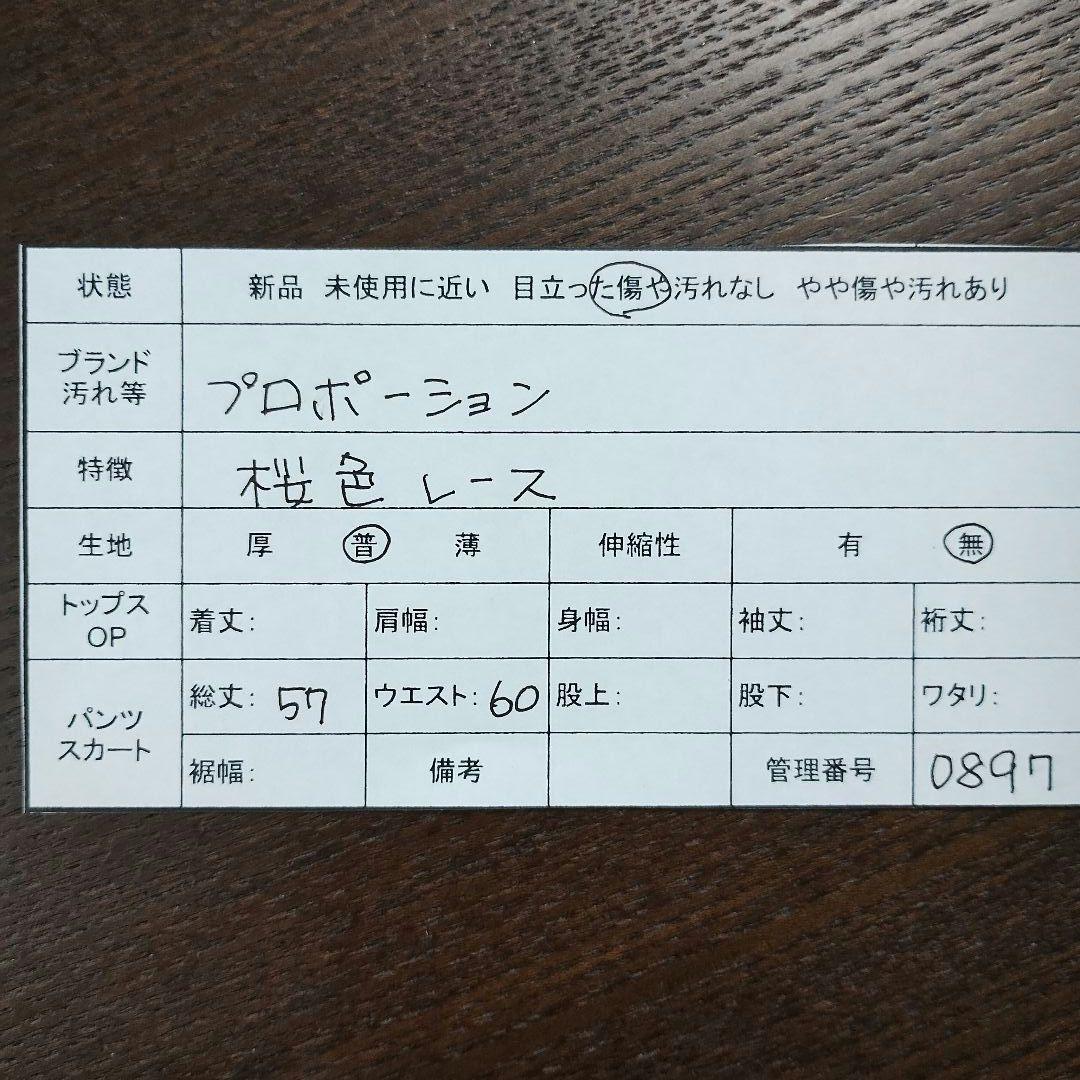 状態 新品 未使用に近い 目立った傷や汚れなし やや傷や汚れあり
ブランド
汚れ等 プロポーション
特徴 桜色 レース
生地 厚 普 薄 伸縮性 有 無
トップス
OP 着丈: 肩幅: 身幅: 袖丈: 裄丈:
パンツ
スカート 総丈: 57 ウエスト: 60 股上: 股下: ワタリ:
裾幅: 備考 管理番号 0897